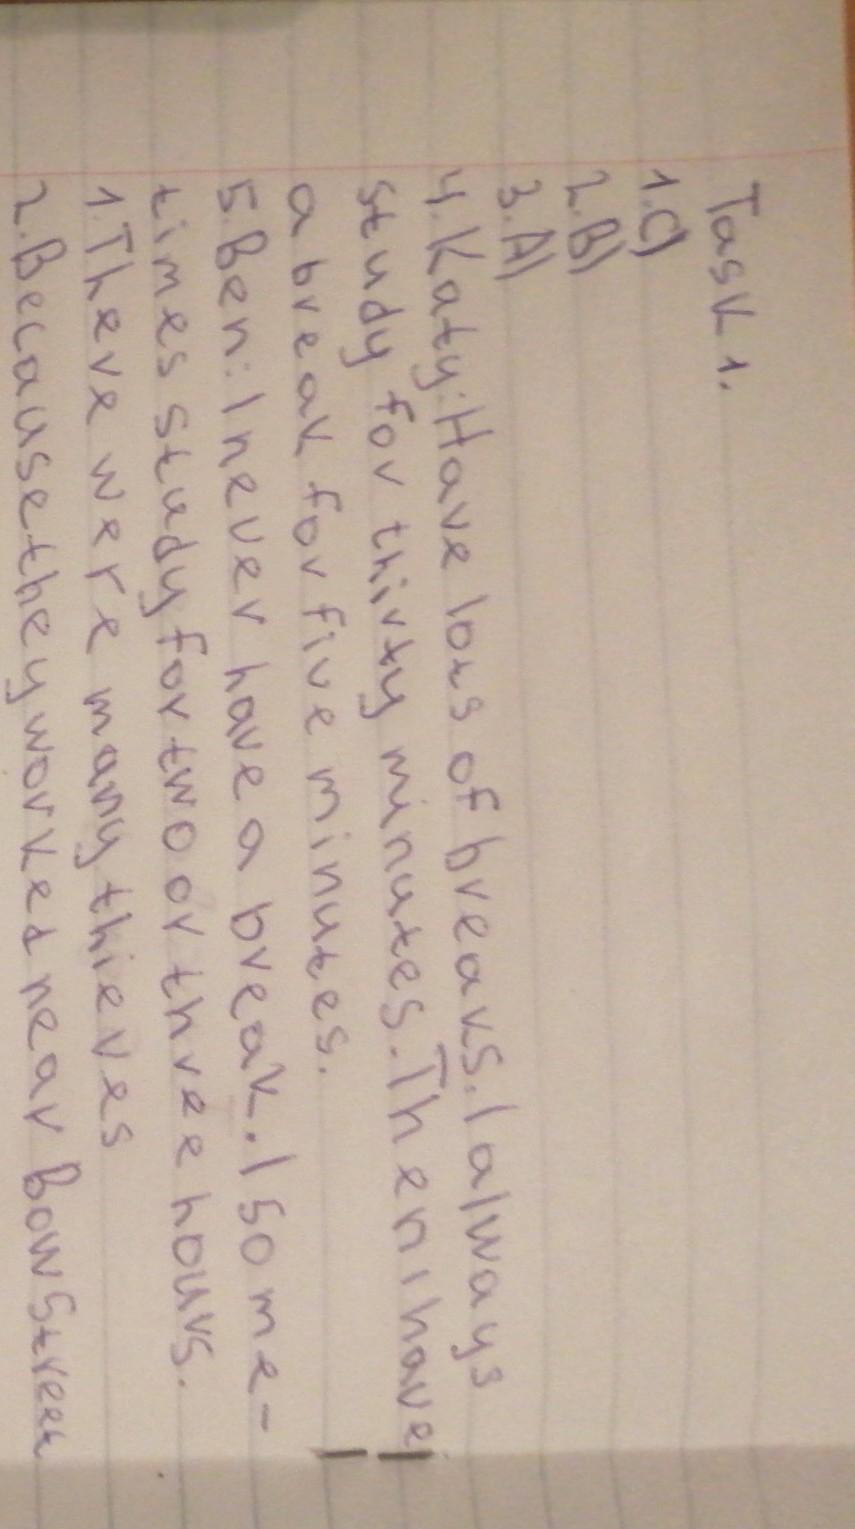 Task 1.
1.C)
2.B)
3.A)
4.Katy:Have lots of breaks.I always
study for thirty minutes.Then i have
a break for five minutes.
5.Ben:I never have a break.I some-
times study for two or three hours.
1.There were many thieves
2.Because they worked near Bow Street